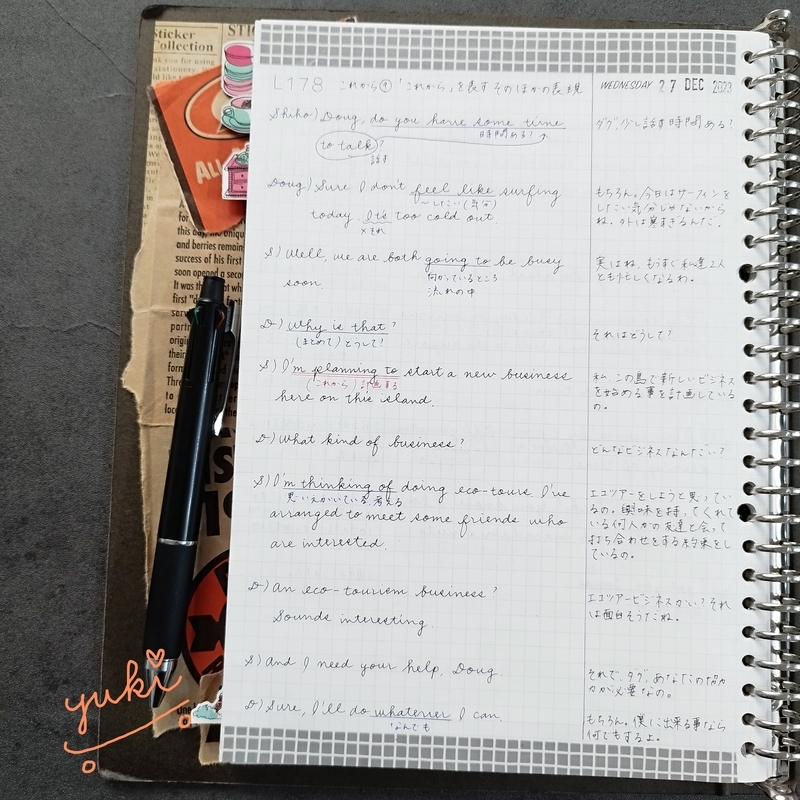 Sticker Collection
ALL
L178 これから④「これから」を表すそのほかの表現
WEDNESDAY 27 DEC 2023
Shiho) Doug, do you have some time
時間ある?
to talk?
話す
ダグ、少し話す時間ある?
Doug) Sure I don't feel like surfing
〜したい(気分)
today. It's too cold out.
×それ
もちろん。今日はサーフィンを
したい気分じゃないから
ね。外は寒すぎるんだ。
S) Well, we are both going to be busy
向かっているところ
soon.
流れの中
実はね、もうすぐ私達2人
とも忙しくなるわ。
D) Why is that?
(まとめて)どうして?
それはどうして?
S) I'm planning to start a new business
(これから)計画する
here on this island.
私、この島で新しいビジネス
を始める事を計画している
の。
D) What kind of business?
どんなビジネスなんだい?
S) I'm thinking of doing eco-tours. I've
思いえがいている、考える
arranged to meet some friends who
are interested.
エコツアーをしようと思ってい
るの。興味を持ってくれて
いる何人かの友達と会って
打ち合わせをする約束をし
ているの。
D) An eco-tourism business?
Sounds interesting.
エコツアービジネスかい?それ
は面白そうだね。
S) And I need your help, Doug.
それで、ダグ、あなたの協力
が必要なの。
D) Sure, I'll do whatever I can.
なんでも
もちろん。僕に出来る事なら
何でもするよ。
yuki